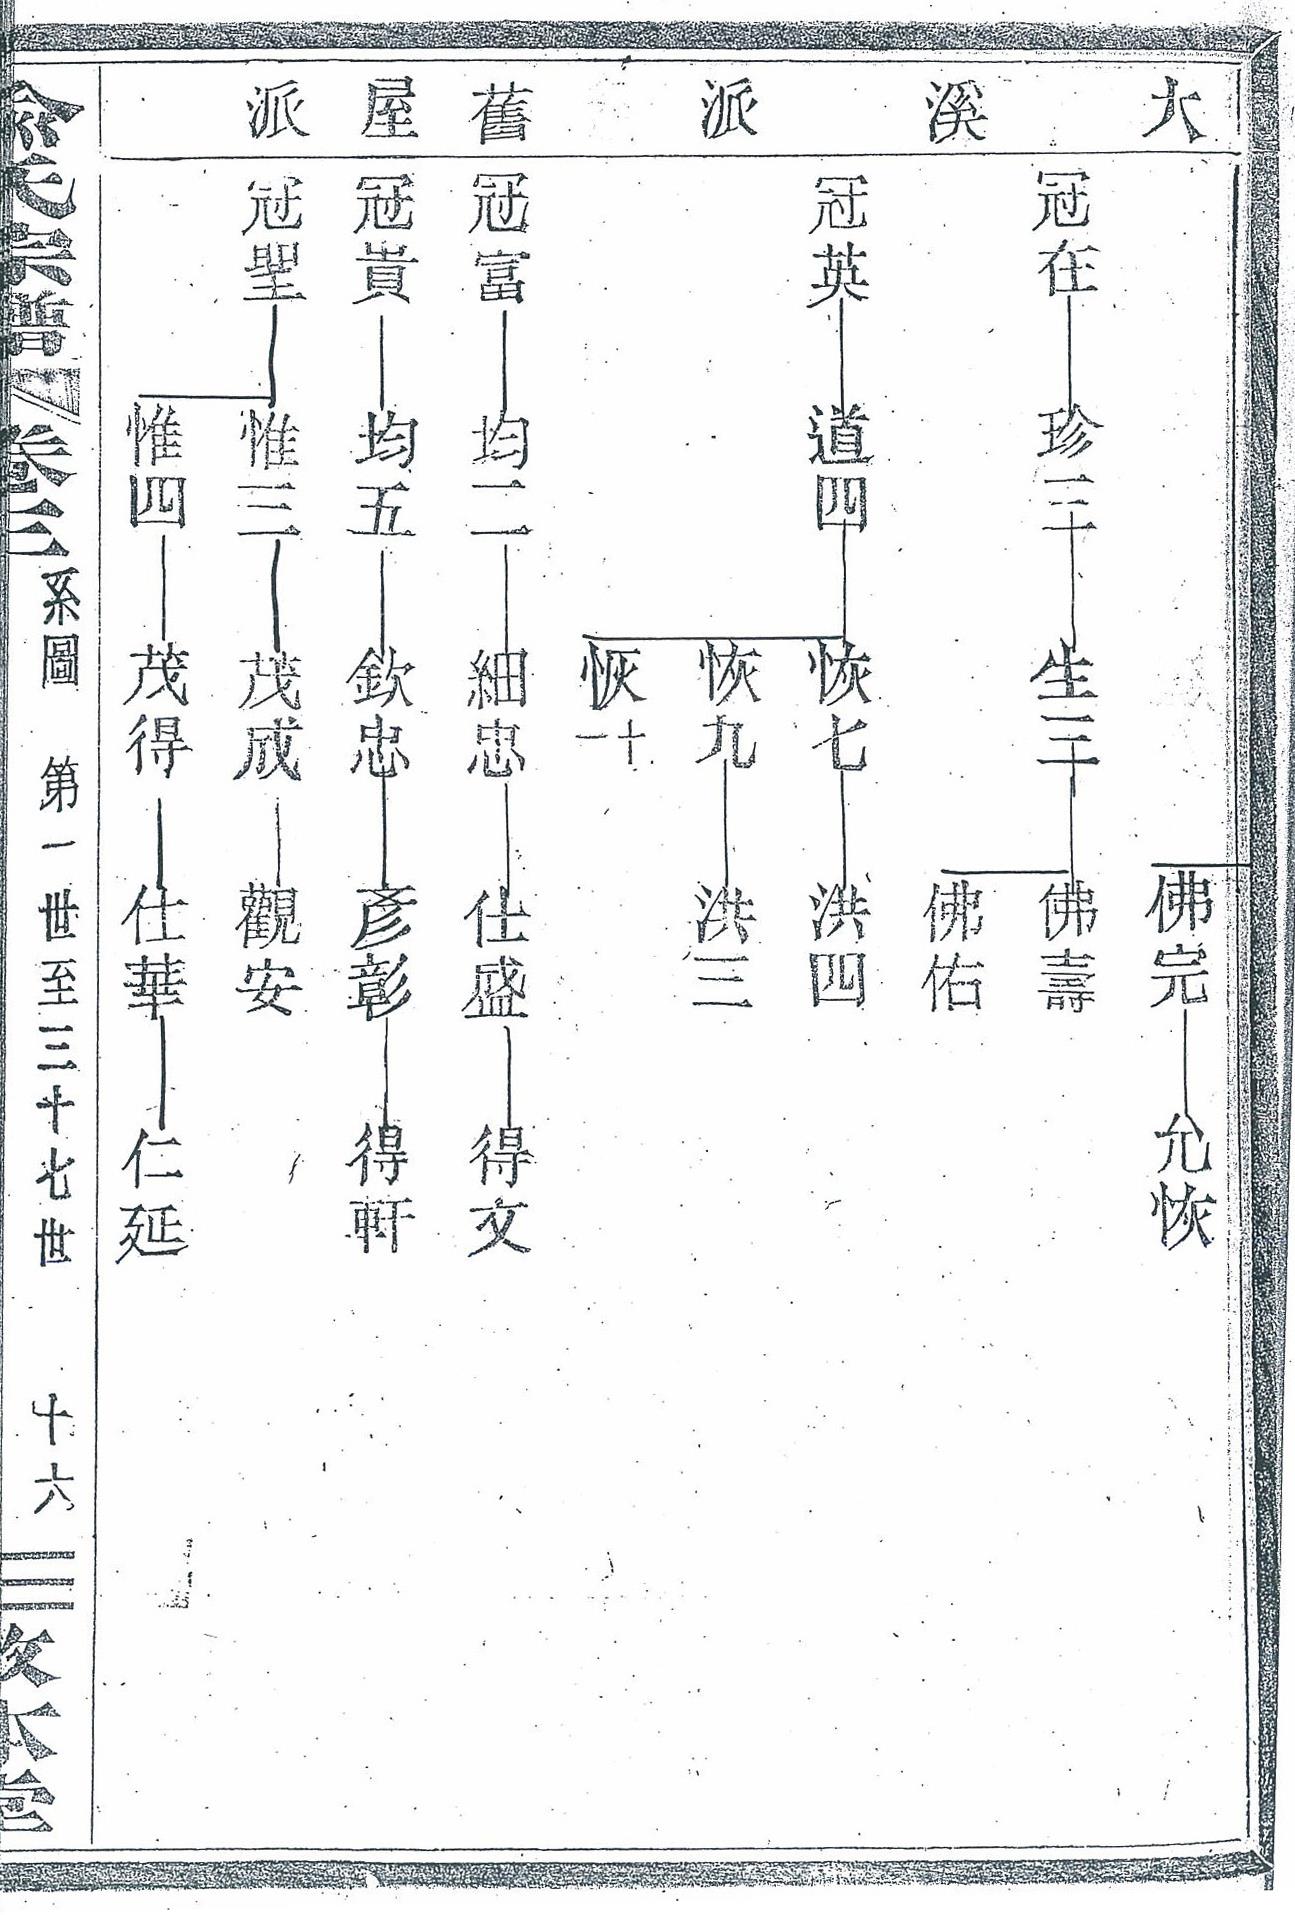 大溪派
舊屋派
佛完 允恢
冠在 珍三 生三 佛壽
佛佑
冠英 道四 恢七 洪四
恢九 洪三
恢十一
冠富 均二 細忠 仕盛 得文
冠貴 均五 欽忠 彥彰 得軒
冠聖 惟三 茂成 觀安
惟四 茂得 仕華 仁延
氏宗譜 卷三 系圖 第一世至三十七世 十六 本堂